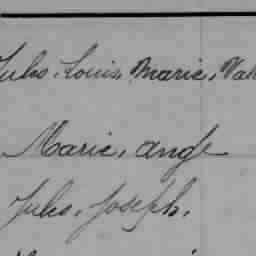 Jules, Louis, Marie,
Marie, ange
Jules, Joseph,